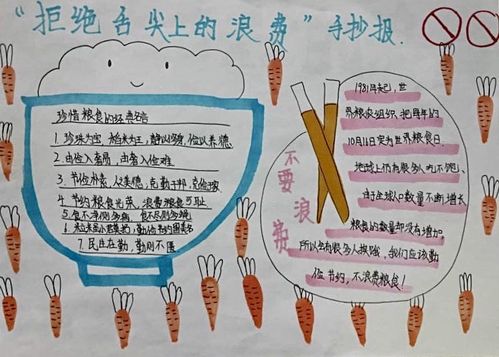 “拒绝舌尖上的浪费”手抄报.
珍惜粮食的经典名言
1.珍珠为宝 稻米为王,静以修身,俭以养德
2.由俭入奢易,由奢入俭难
3.节俭朴素,人之美德,
4.节约粮食光荣,浪费粮食可耻
7.民生在勤,勤则不匮
不要浪费
1981年起,世
界粮农组织,把每年的
10月16日定为世界粮食日.
地球上仍有很多人吃不饱.
由于全球人口数量不断增长
粮食的数量却没有增加.
所以会有很多人挨饿,我们应该勤
俭节约,不浪费粮食!